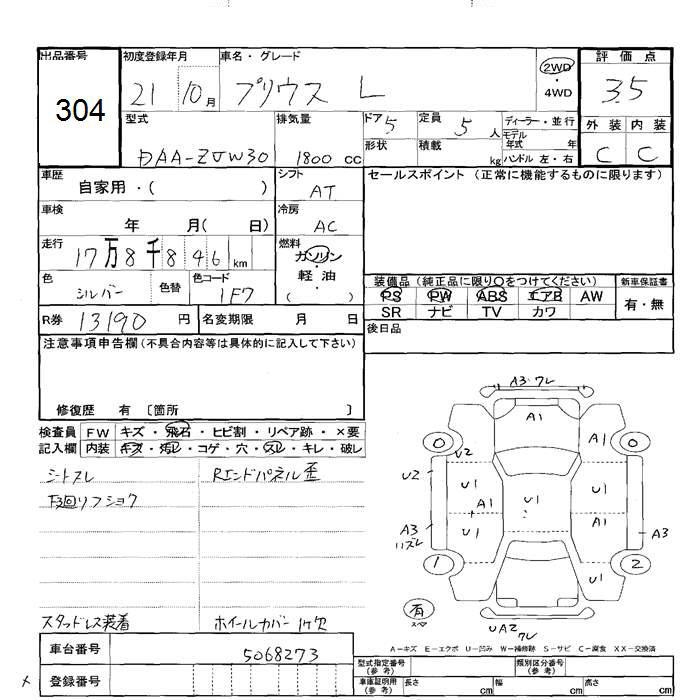 出品番号 初度登録年月 車名・グレード 2WD 評価点
304 21 10月 プリウス L 4WD 3.5
型式 排気量 ドア 5 定員 5人 ディーラー・並行 外装 内装
DAA-ZVW30 1800 cc 形状 積載 kg モデル年式 年 ハンドル 左・右 C C
車歴 自家用・( ) シフト AT セールスポイント(正常に機能するものに限ります)
車検 年 月( 日) 冷房 AC
走行 17万8千846km 燃料 ガソリン
軽・油
( )
色 シルバー 色替 色コード 1F7 装備品(純正品に限り○をつけてください) 新車保証書
PS PW ABS エアB AW 有・無
SR ナビ TV カワ
R券 13190 円 名変期限 月 日 後日品
注意事項申告欄(不具合内容等は具体的に記入して下さい)
修復歴 有 〔箇所 〕
検査員 FW キズ・飛石・ヒビ割・リペア跡・×要
記入欄 内装 キズ・汚レ・コゲ・穴・スレ・キレ・破レ
シートスレ Rエンドパネル歪
下廻リフショク
スタッドレス装着 ホイールカバー1ケ欠
A3 ワレ
A1
0 0
U2 A1
U2 U1 U1
A1 A1
A3 U1 A3
ハズレ
1 U1 2
有 スペア
UA2
ワレ
A-キズ E-エクボ U-凹み W-補修跡 S-サビ C-腐食 XX-交換済
車台番号 5068273 型式指定番号(参考) 類別区分番号(参考)
登録番号 車庫証明用(参考) 長さ cm 幅 cm 高さ cm
x